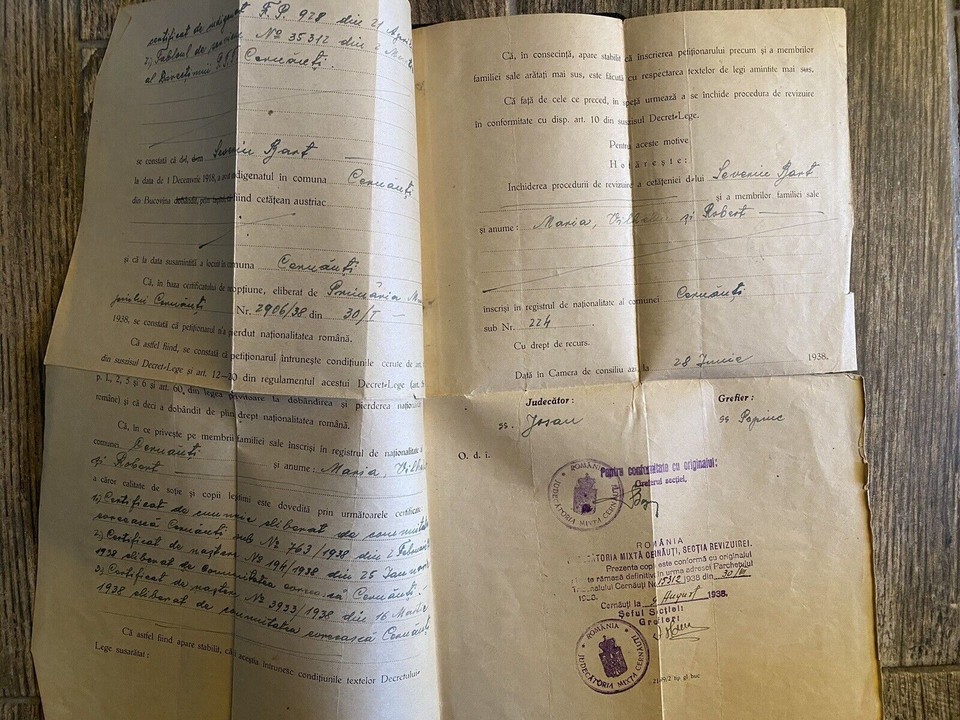 certificat de indigenat F.P. 928 din 21
2) Tabloul de Nº 35312 din
al 951 Cernăuți.
se constată că del. Severin Bart
la data de 1 Decemvrie 1918, a indigenatul în comuna Cernăuți
din Bucovina fiind cetățean austriac
și că la data susamintită a locuit în comuna Cernăuți
Că, în baza certificatului de opțiune, eliberat de Primăria
Cernăuți Nr. 2906/38 din 30/I —
1938, se constată că petiționarul n'a pierdut naționalitatea română.
Că astfel fiind, se constată că petiționarul întrunește condițiunile cerute de art.
din suszisul Decret-Lege și art. 12—20 din regulamentul acestui Decret-Lege (art.
p. 1, 2, 5 și 6 și art. 60, din legea privitoare la dobândirea și pierderea
române) și că deci a dobândit de plin drept naționalitatea română.
Că, în ce privește pe membrii familiei sale înscriși în registrul de naționalitate a
comunei Cernăuți
și Robert și anume: Maria,
a căror calitate de soție și copii legitimi este dovedită prin următoarele certificate:
1) Certificat de cununie eliberat de comunitatea
evreească Cernăuți sub Nº 763/1938 din 2
2) Certificat de naștere Nº 194/1938 din 25
1938 eliberat de Comunitatea Cernăuți.
3) Certificat de naștere Nº 3933/1938 din 16
1938 eliberat de comunitatea evreească Cernăuți
Că astfel fiind apare stabilit, că și aceștia întrunesc condițiunile textelor Decretului-
Lege susarătat:
Că, în consecință, apare stabilit că înscrierea petiționarului precum și a membrilor
familiei sale arătați mai sus, este făcută cu respectarea textelor de legi amintite mai sus.
Că față de cele ce preced, în speță urmează a se închide procedura de revizuire
în conformitate cu disp. art. 10 din suszisul Decret-Lege.
Pentru aceste motive
Hotărește:
Închiderea procedurii de revizuire a cetățeniei d-lui Severin Bart
și a membrilor familiei sale
și anume: Maria, și Robert
înscriși în registrul de naționalitate al comunei Cernăuți
sub Nr. 224
Cu drept de recurs.
Dată în Camera de consiliu azi, la 28 Iunie 1938.
Judecător: Grefier:
ss. Josan ss Popiuc
O. d. i.
Pentru conformitate cu originalul:
Grefierul secției,
ROMÂNIA
JUDECĂTORIA MIXTĂ
ROMÂNIA
JUDECĂTORIA MIXTĂ CERNĂUȚI, SECȚIA REVIZUIREI.
Prezenta copie este conformă cu originalul
rămasă definitivă în urma adresei Parchetului
Tribunalului Cernăuți No. 15312 1938 din 30/VII
1938.
Cernăuți la 9 August 1938.
Șeful Secției:
Grefier:
ROMÂNIA
JUDECĂTORIA MIXTĂ CERNĂUȚI